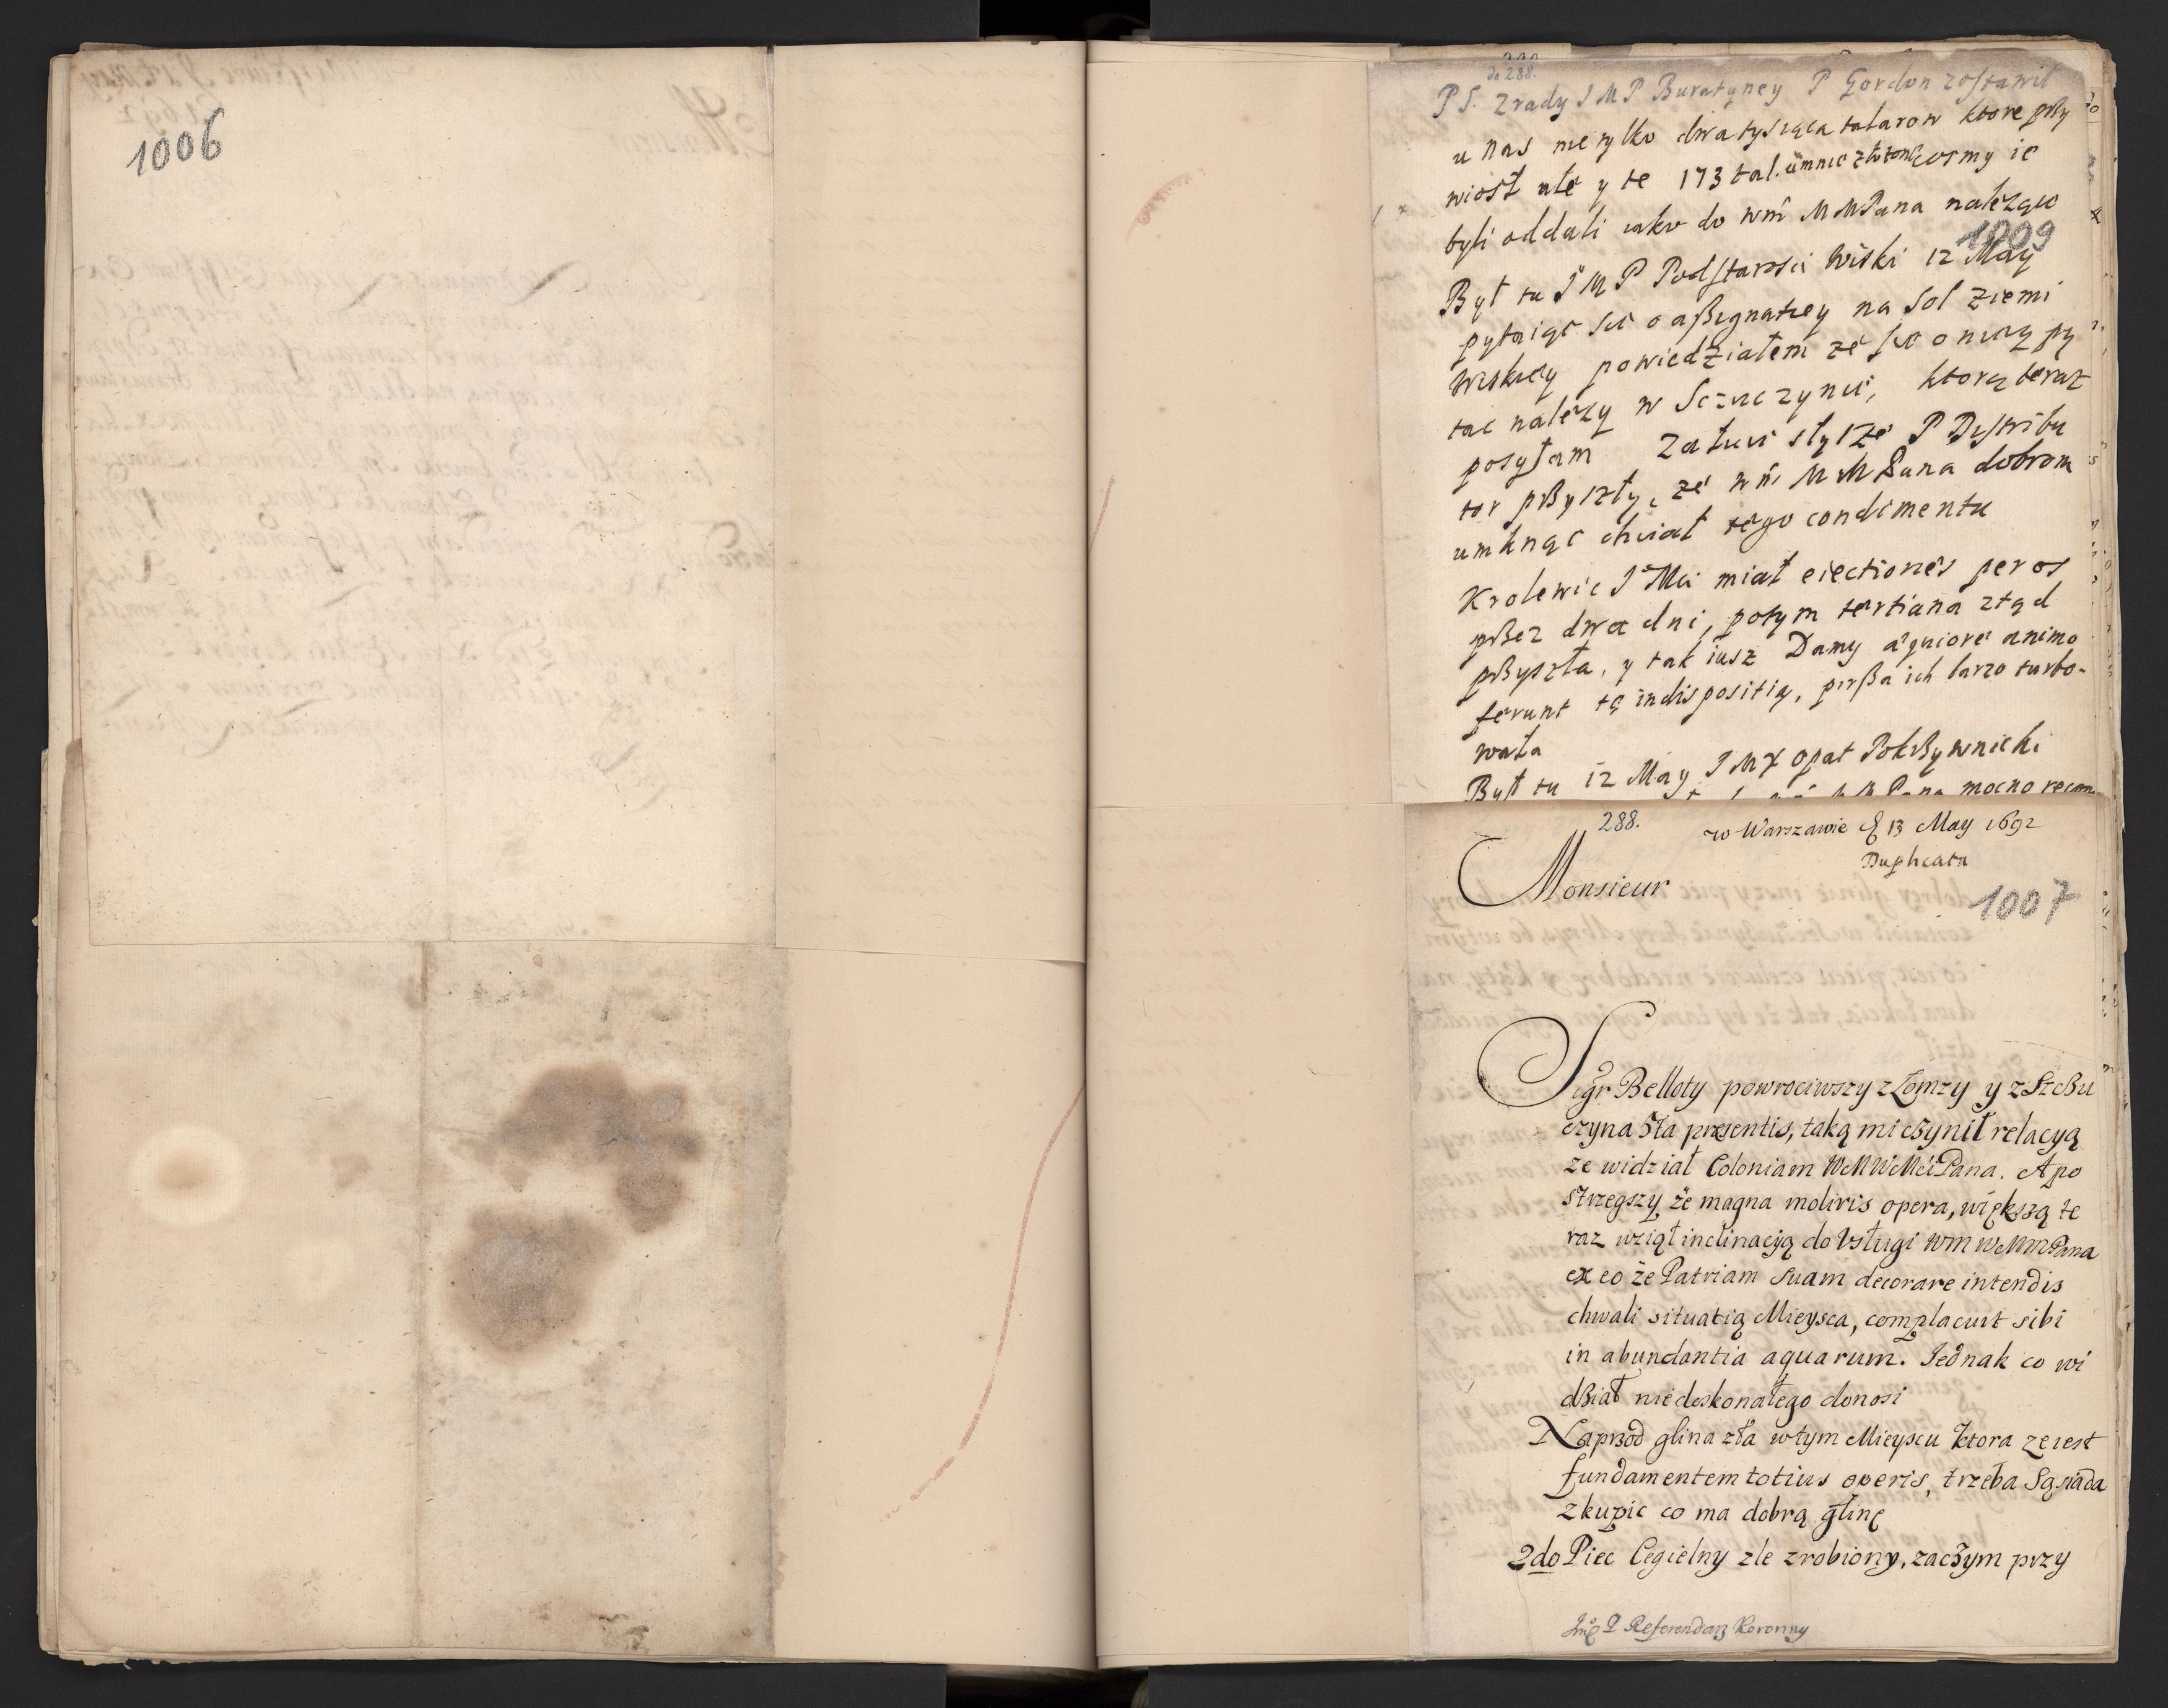 1006
de 288.
PS. Zrady J M P Buratyney P Gordon zostawil
u nas nie tylko dwa tysiąca talarow ktore pßy
wiosł ale y te 173 tal. umnie złozone
byli oddali iako do wm MMPana należące
1009
Był tu J M P Podstarosci Wiski 12 May
pytaiąc sie o aßignatiey na Sol ziemi
Wiskiey powiedziałem ze sie o nieą py
tac należy w Sczuczynie, ktorą teraz
posyłam Załuie słysze P Distribu
tor pßyszły, ze wm M M Pana dobrom
umknąc chciał tego condimentu
Krolewic J Mci miał eiectiones per os
pßez dwa dni, potym tertiana ztąd
pßyszła, y tak iusz Damy aequiore animo
ferunt tę indispositią, pirßa ich barzo turbo-
wała
Był tu 12 May J M X Opat Pokßywnicki
mocno recom
288.
w Warszawie d 13 May 1692
Duplicata
Monsieur
1007
Sigr Belloty powrociwszy z Łomzy y z Szcßu
czyna 5ta presentis, taką mi czynił relacyą
ze widział Coloniam WMWMciPana. A po
strzegszy że magna moliris opera, większą te
raz wziął inclinacyją do Vsługi WM WMMPana
ex eo że Patriam Suam decorare intendis
chwali situatią Mieysca, complacuit sibi
in abundantia aquarum. Jednak co wi
dßiał niedoskonałego donosi
Naprzod glina zła wtym Mieyscu ktora ze iest
fundamentem totius operis, trzeba Sąsiada
zkupic co ma dobrą glinę
2do Piec Cegielny zle zrobiony, zaczym przy
Jmc P Referendarz Koronny